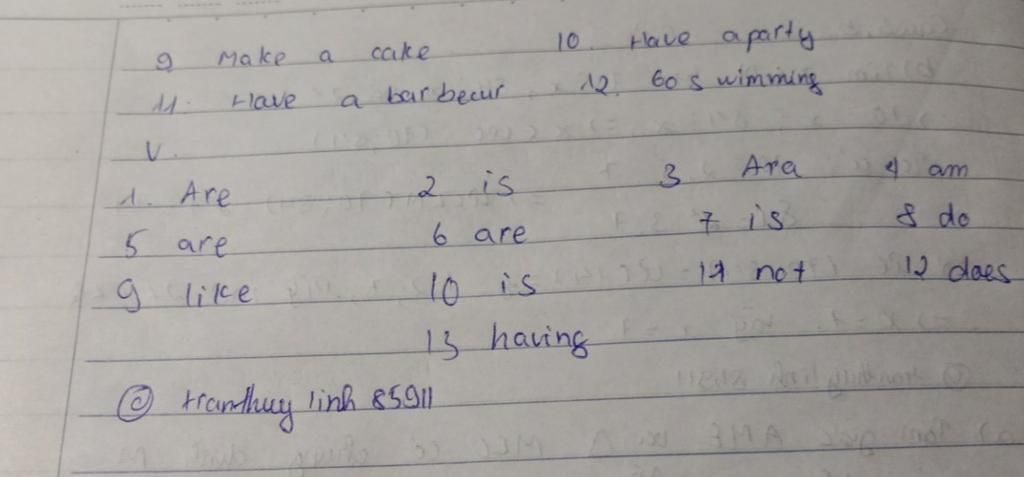 9 Make a cake 10. Have a party
11. Have a barbecur 12. Go swimming
V.
1. Are 2 is 3 Ara 4 am
5 are 6 are 7 is 8 do
9 like 10 is 11 not 12 daes
13 having
© tranthuy linh 85911